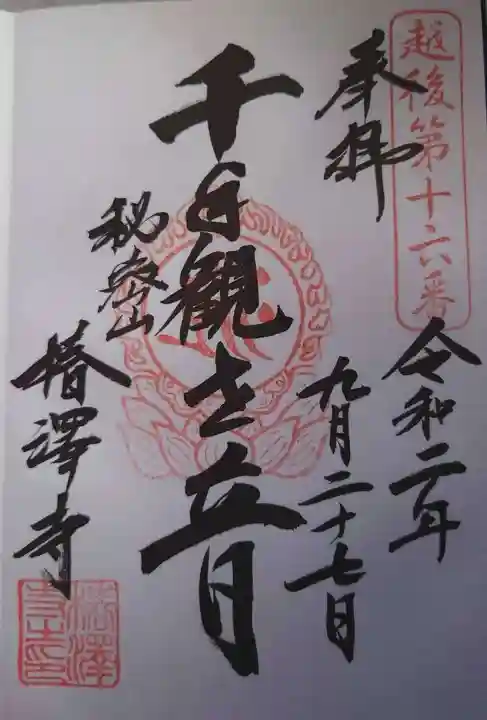 越後第十六番
奉拝
令和二年
九月二十七日
千手観世音
秘密山
椿澤寺
椿澤寺印